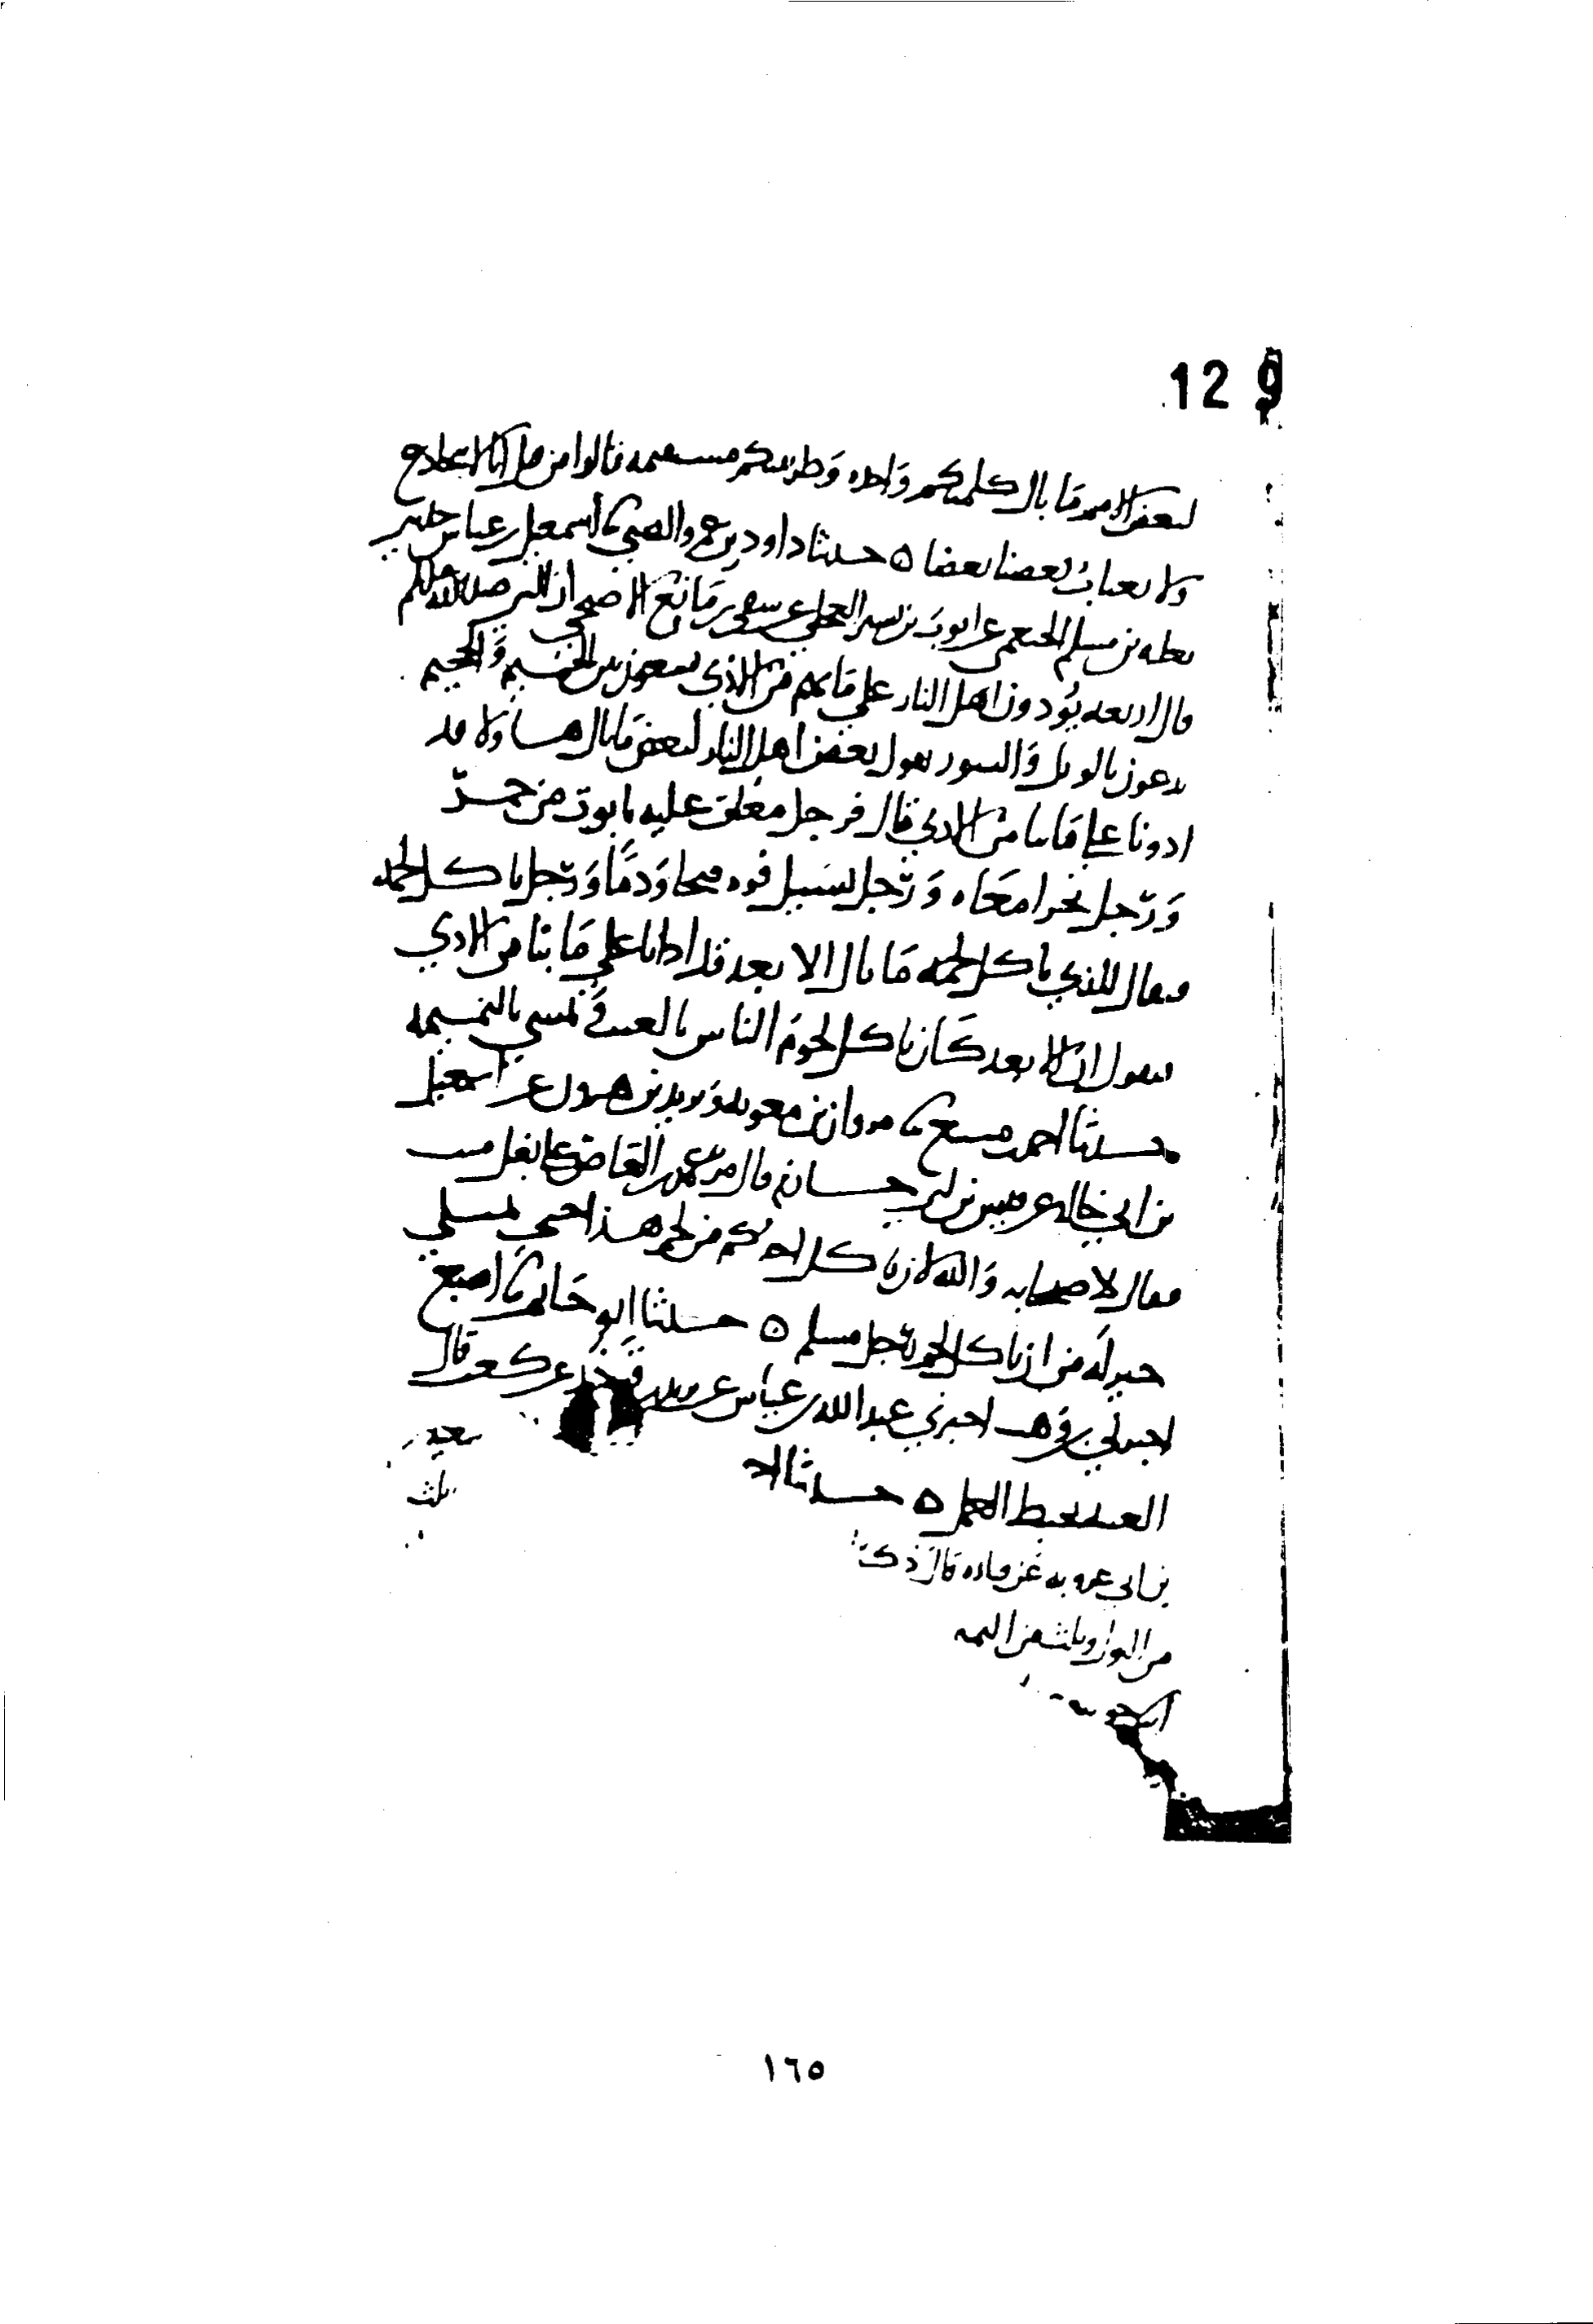 129
لبعض الامم ما بال كلمتكم واحده وطريقتكم مستقيمه قالوا من قبل انا لا نتخادع
ولا يغتاب بعضنا بعضا ه حدثنا داود بن عمرو الضبي نا اسمعيل بن عياش حدثني
ثعلبه بن مسلم الخثعمي عن ايوب بن بشير العجلي عن شفي بن ماتع الاصبحي ان النبي صلى الله عليه وسلم
قال اربعه يؤذون اهل النار على ما بهم من الاذي يسعون بين الحميم والجحيم
يدعون بالويل والثبور يقول بعض اهل النار لبعض ما بال هساولا قد
اذونا على ما بنا من الاذي قال فرجل مغلق عليه تابوت من جمر
ورجل يجر امعاه ورجل يسيل فوه قيحا ودما ورجل ياكل لحمه
فيقال للذي ياكل لحمه ما بال الابعد قد اذانا على ما بنا من الاذي
فيقول ان الابعد كان ياكل لحوم الناس بالغيبه ويمشي بالنميمه
حدثنا احمد بن منيع نا مروان بن معويه ويزيد بن هرون عن اسمعيل
بن ابي خالد عن قيس بن ابي حسازم قال مر عمرو بن العاص على بغل ميت
فقال لاصحابه والله لان ياكل احدكم من لحم هذا حتى يمتلي
خير له من ان ياكل لحم رجل مسلم ه حدثنا ابو حاتم نا اصبغ
اخبرني بن وهب اخبرني عبد الله بن عياش عن يزيد بن قوذر عن كعب قال
الغيبه تحبط العمل ه حدثنا احمد
سعيد
بن ابي عروبه عن قتاده قال ذكر
ثلث
من البول وثلث من النميمه
١٦٥